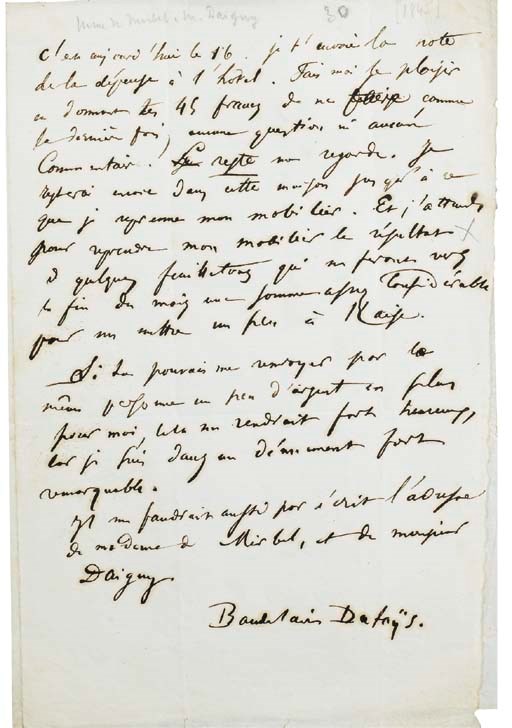 Mme de Mirbel. M. Daiguy 30 [184-]
c'est aujourd'hui le 16. je t'envoie la note
de la dépense à l'hôtel. Fais moi le plaisir
en donnant les 45 francs de ne faire comme
la dernière fois, aucune question ni aucun
Commentair. Le reste me regarde. Je
resterai encore dans cette maison jusqu'à ce
que je reprenne mon mobilier. Et j'attends
pour reprendre mon mobilier le résultat
de quelques feuilletons qui me feront vers
la fin du mois une somme assez Considérable
pour me mettre un peu à l'aise.
Si tu pouvais me renvoyer par la
même personne un peu d'argent en plus
pour moi, cela me rendrait fort heureux,
car je suis dans un dénuement fort
remarquable.
Il me faudrait aussi par écrit l'adresse
de madame de Mirbel, et de monsieur
Daiguy
Baudelaire Dufaÿs.